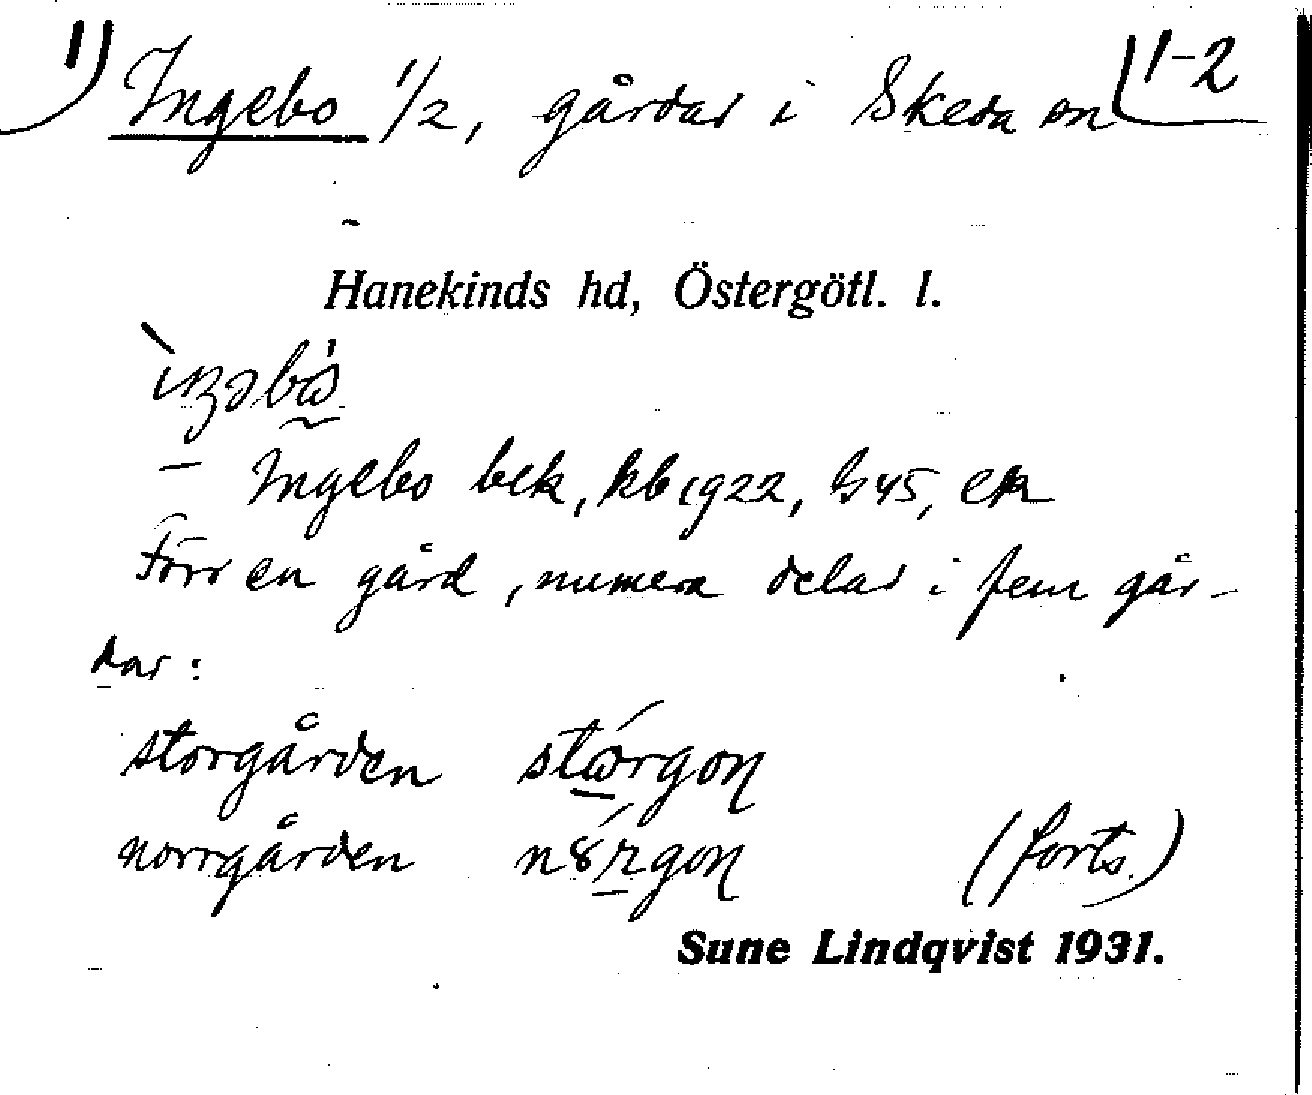 1) Ingebo 1/2, gårdar i Skeda sn 1-2
Hanekinds hd, Östergötl. l.
– Ingebo bek, kb 1922, G 45, ek
Förr en gård, numera delad i fem går-
dar:
storgården
norrgården (forts.)
Sune Lindqvist 1931.